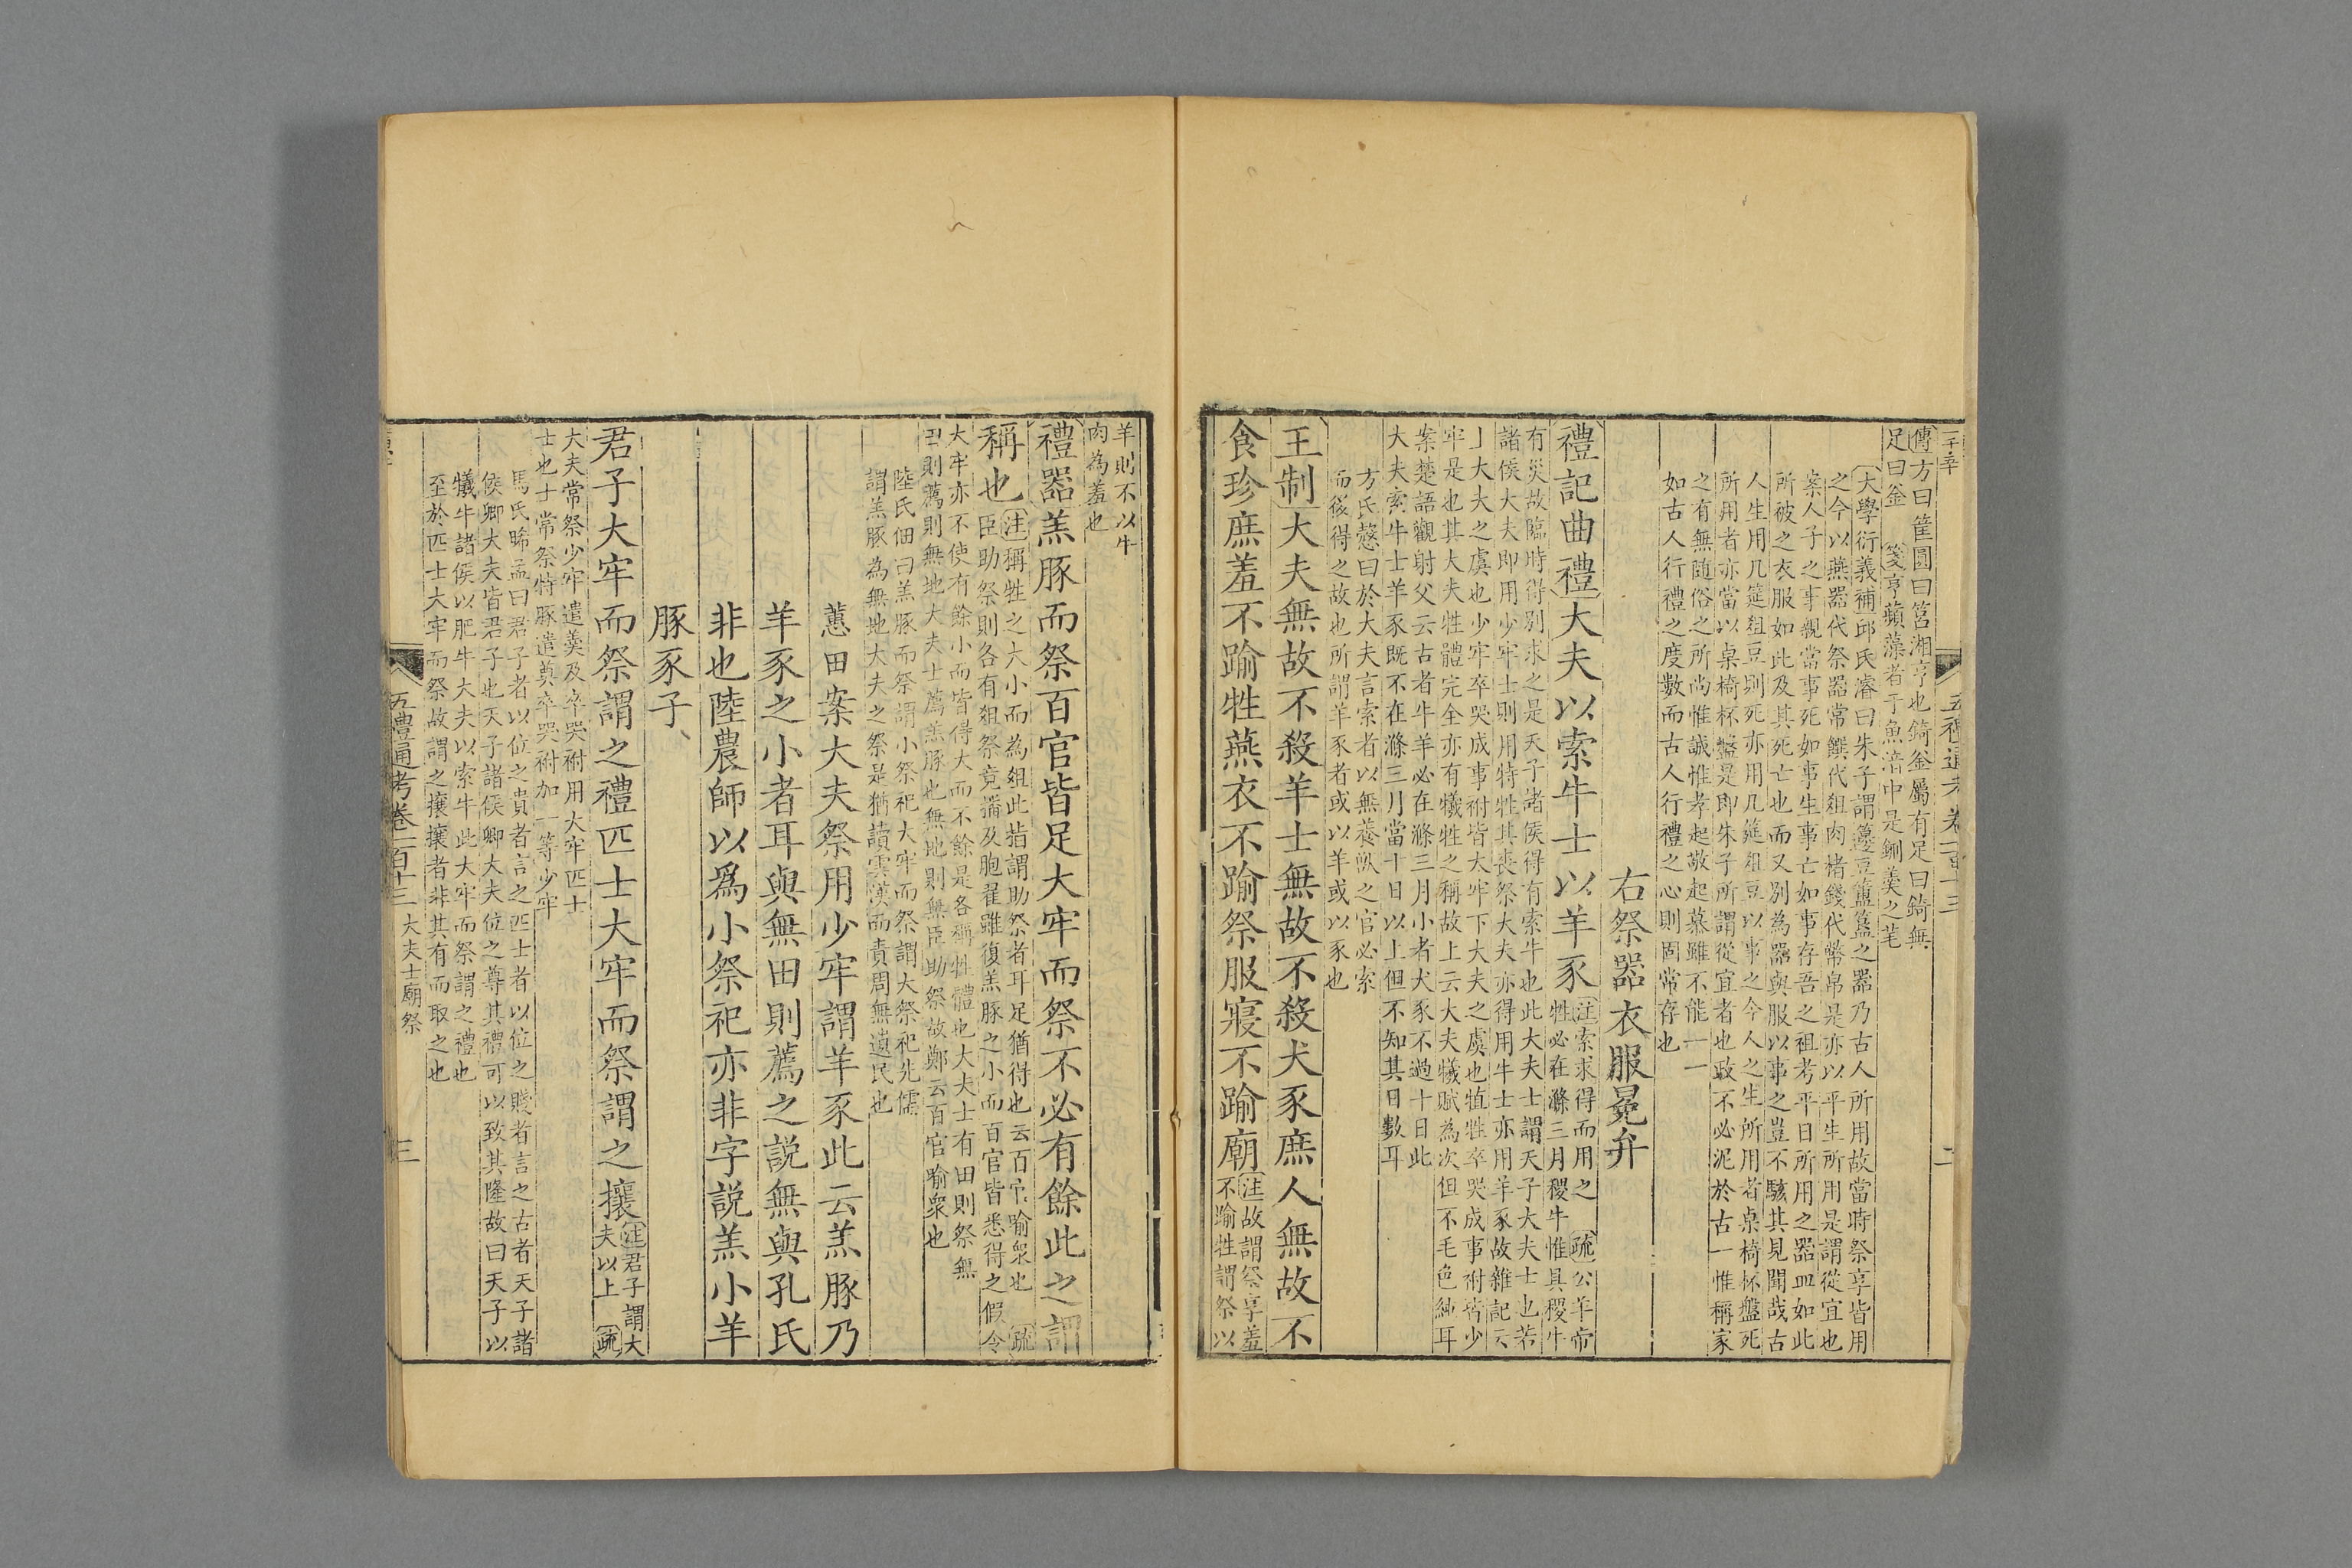 五禮通考卷一百十三
二
傳方曰筐圓曰筥湘亨也錡釜屬有足曰錡無
足曰釜 箋亨蘋藻者于魚湆中是鉶羹之芼
大學衍義補邱氏濬曰朱子謂籩豆簠簋之器乃古人所用故當時祭享皆用
之今以燕器代祭器常饌代俎肉楮錢代幣帛是亦以平生所用是謂從宜也
案人子之事親當事死如事生事亡如事存吾之祖考平日所用之器皿如此
所被之衣服如此及其死亡也而又別為器與服以事之豈不駭其見聞哉古
人生用几筵俎豆則死亦用几筵俎豆以事之今人之生所用者桌椅杯盤死
所用者亦當以桌椅杯盤是即朱子所謂從宜者也政不必泥於古一惟稱家
之有無隨俗之所尚惟誠惟孝起敬起慕雖不能一一
如古人行禮之度數而古人行禮之心則固常存也
右祭器衣服冕弁
禮記曲禮大夫以索牛士以羊豕
注索求得而用之 疏公羊帝
牲必在滌三月稷牛惟具稷牛
有災故臨時得別求之是天子諸侯得有索牛也此大夫士謂天子大夫士也若
諸侯大夫即用少牢士則用特牲其喪祭大夫亦得用牛士亦用羊豕故雜記云
上大夫之虞也少牢卒哭成事祔皆大牢下大夫之虞也犆牲卒哭成事祔皆少
牢是也其大夫牲體完全亦有犧牲之稱故上云大夫犧賦為次但不毛色純耳
案楚語觀射父云古者牛羊必在滌三月小者犬豕不過十日此
大夫索牛士羊豕既不在滌三月當十日以上但不知其日數耳
方氏慤曰於大夫言索者以無養獸之官必索
而後得之故也所謂羊豕者或以羊或以豕也
王制大夫無故不殺羊士無故不殺犬豕庶人無故不
食珍庶羞不踰牲燕衣不踰祭服寢不踰廟
注故謂祭享羞
不踰牲謂祭以
羊則不以牛
肉為羞也
禮器羔豚而祭百官皆足大牢而祭不必有餘此之謂
稱也
注稱牲之大小而為俎此指謂助祭者耳足猶得也云百官喻衆也 疏
臣助祭則各有俎祭竟播及胞翟雖復羔豚之小而百官皆悉得之假令
大牢亦不使有餘小而皆得大而不餘是各稱牲體也大夫士有田則祭無
田則薦則無地大夫士薦羔豚也無地則無臣助祭故鄭云百官喻衆也
陸氏佃曰羔豚而祭謂小祭祀大牢而祭謂大祭祀先儒
謂羔豚為無地大夫之祭是猶讀雲漢而責周無遺民也
蕙田案大夫祭用少牢謂羊豕此云羔豚乃
羊豕之小者耳與無田則薦之説無與孔氏
非也陸農師以爲小祭祀亦非字説羔小羊
豚豕子
君子大牢而祭謂之禮匹士大牢而祭謂之攘
注君子謂大
夫以上 疏
大夫常祭少牢遣奠及卒哭祔用大牢匹士
士也士常祭特豚遣奠卒哭祔加一等少牢
馬氏晞孟曰君子者以位之貴者言之匹士者以位之賤者言之古者天子諸
侯卿大夫皆君子也天子諸侯卿大夫位之尊其禮可以致其隆故曰天子以
犧牛諸侯以肥牛大夫以索牛此大牢而祭謂之禮也
至於匹士大牢而祭故謂之攘攘者非其有而取之也
五禮通考卷一百十三 大夫士廟祭
三